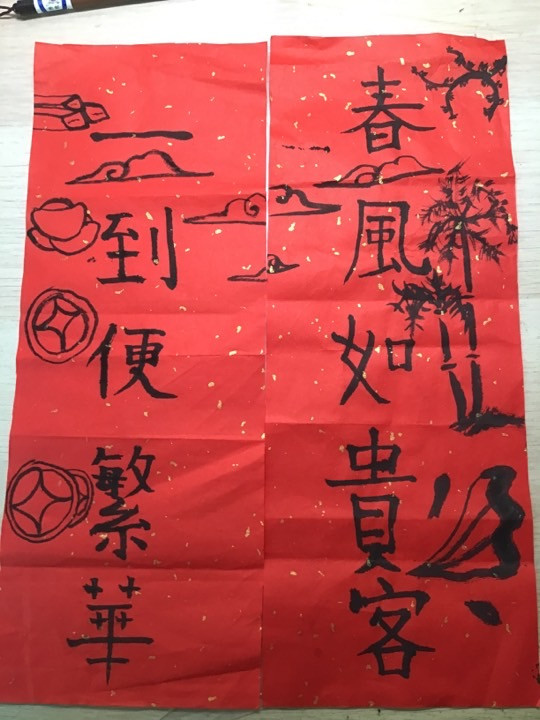 春風如貴客
一到便繁華